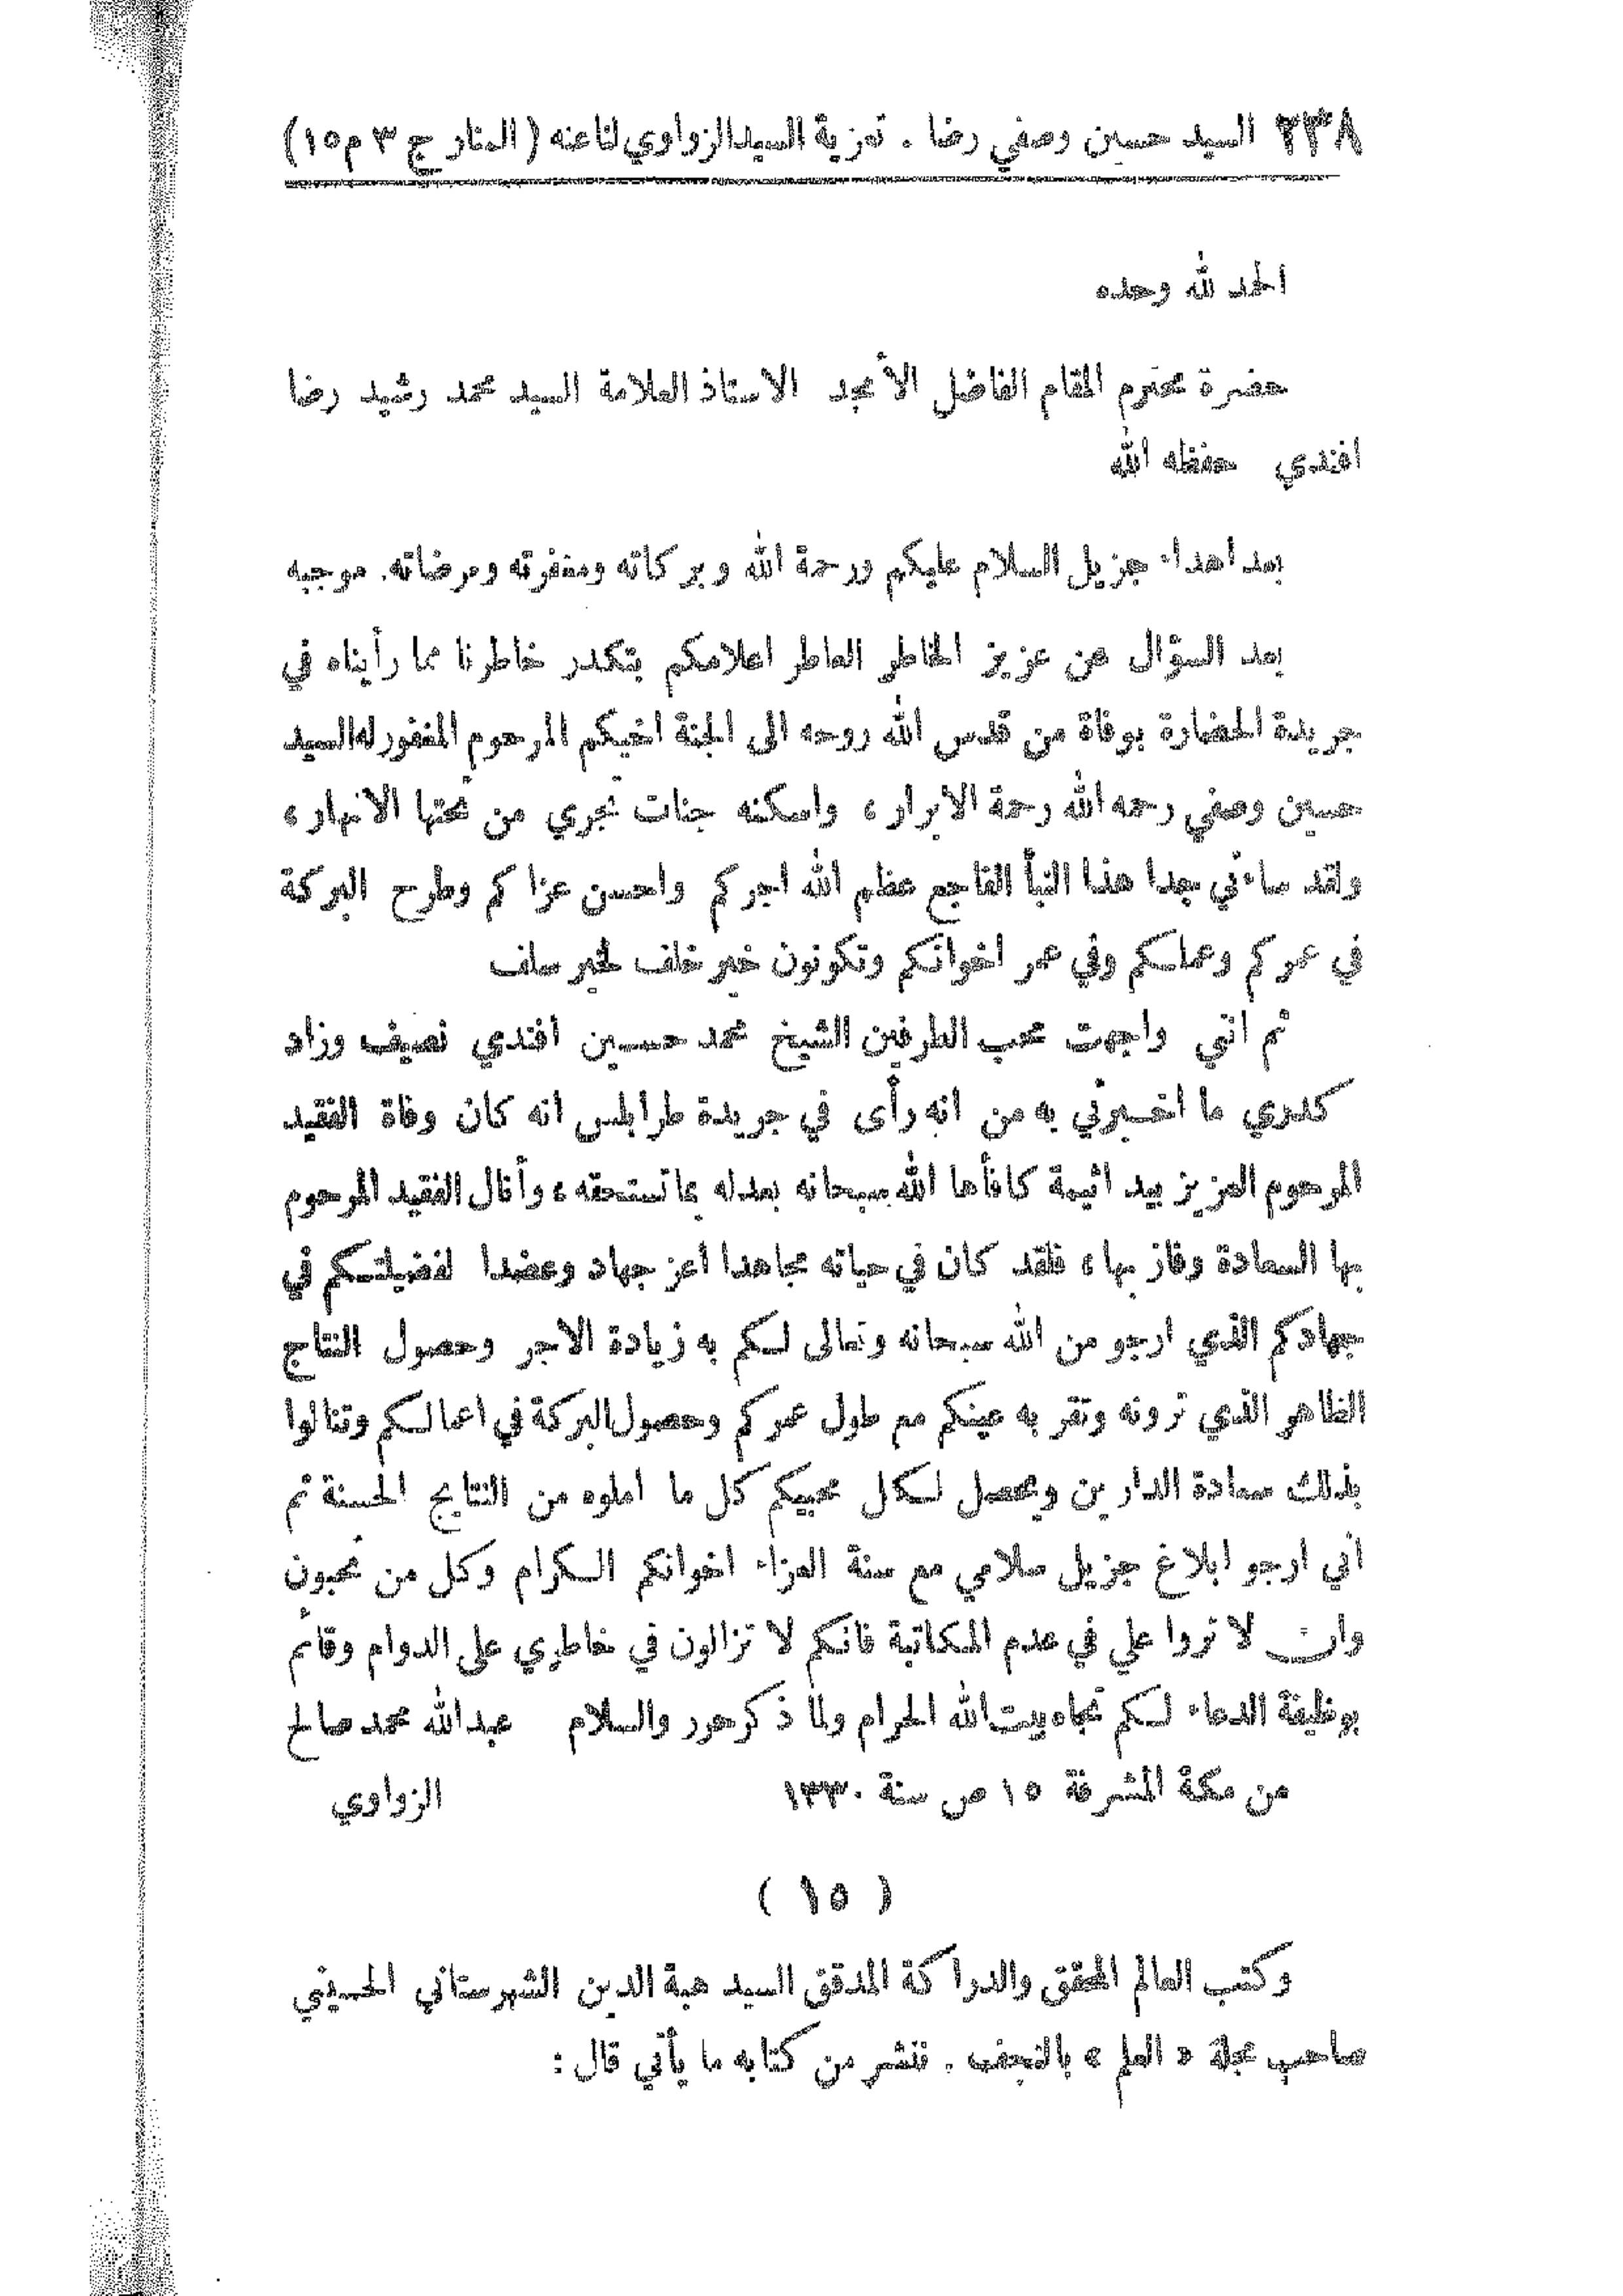 ٢٣٨ السيد حسين وصفي رضا . تعزية السيد الزواوي لنا عنه ( المنار ج ٣ م ١٥)
الحمد لله وحده
حضرة محترم المقام الفاضل الأمجد الاستاذ العلامة السيد محمد رشيد رضا
افندي حفظه الله
بعد اهداء جزيل السلام عليكم ورحمة الله وبركاته ومغفرته ومرضاته. موجبه
بعد السؤال عن عزيز الخاطر العاطر اعلامكم بتكدر خاطرنا مما رأيناه في
جريدة الحضارة بوفاة من قدس الله روحه الى الجنة اخيكم المرحوم المغفور له السيد
حسين وصفي رحمه الله رحمة الابرار ، واسكنه جنات تجري من تحتها الانهار ،
ولقد ساءني جدا هذا النبأ الفاجع عظم الله اجركم واحسن عزاكم وطرح البركة
في عمركم وعملكم وفي عمر اخوانكم وتكونون خير خلف لخير سلف
ثم انني واجهت محب الطرفين الشيخ محمد حسين افندي نصيف وزاد
كدري ما اخبرني به من انه رأى في جريدة طرابلس انه كان وفاة الفقيد
المرحوم العزيز بيد اثيمة كافأها الله سبحانه بعدله بما تستحقه ، وأنال الفقيد المرحوم
بها السعادة وفاز بها ، فلقد كان في حياته مجاهدا أعز جهاد وعضدا لفضيلتكم في
جهادكم الذي ارجو من الله سبحانه وتعالى لكم به زيادة الاجر وحصول النتاج
الظاهر الذي ترونه وتقر به عينكم مع طول عمركم وحصول البركة في اعمالكم وتنالوا
بذلك سعادة الدارين ويحصل لكل محبيكم كل ما املوه من النتايج الحسنة ثم
اني ارجو ابلاغ جزيل سلامي مع سنة العزاء اخوانكم الكرام وكل من تحبون
وان لا تروا علي في عدم المكاتبة فانكم لا تزالون في خاطري على الدوام وقائم
بوظيفة الدعاء لكم تجاه بيت الله الحرام ولما ذكر حرر والسلام عبدالله محمد صالح
من مكة المشرفة ١٥ ص سنة ١٣٣٠ الزواوي
( ١٥ )
وكتب العالم المحقق والدراكة المدقق السيد هبة الدين الشهرستاني الحسيني
صاحب مجلة « العلم » بالنجف . ننشر من كتابه ما يأتي قال :